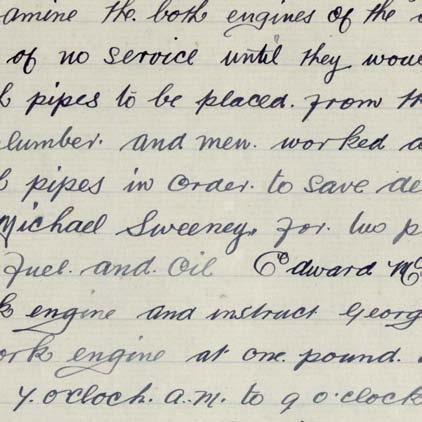 amine the. both engines of the
of no service until they wou
pipes to be placed. from th
lumber. and men. worked a
pipes in order. to save de
Michael Sweeney. for. two p
Fuel. and. Oil Edward Mc
k engine and instruct Georg
ork engine at one. pound.
7. o'clock. a.m. to 9 o'clock